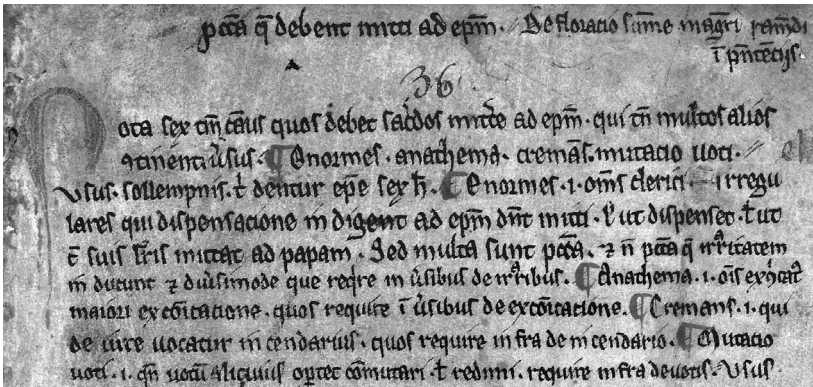 pctā q̄ debent mitti ad ep̄m. Defloracio sum̄e magr̄i raym̄di
ī pn̄tētijs.
36
Nota sex tm̄ cāus quos debet sac̄dos mittē ad ep̄m. qui tn̄ multos alios
9tinent ūsus. ¶ Enormes. anathema. cremās. mutacio uoti.
Vsus. sollempnis. t̄ dentur ep̄e sex h̄. ¶ Enormes .i. om̄s clerici irregu
lares qui dispensacione indigent ad ep̄m dn̄t mitti. ł ut dispenset. t̄ ut
c̄ suis l̄ris mittat ad papam. Sed multa sunt pctā. ⁊ n̄ pctā q̄ irr̄itatem
inducunt ⁊ diūsimode que reqr̄e in ūsibus de irr̄ibus. ¶ Anathema .i. ōis
maiori excōicatione. quos require ī ūsibus de excōicatione. ¶ Cremans .i. qui
de iure uocatur incendarius. quos require infra de incendario. ¶ Mutacio
uoti .i. qn̄ uotū alicuius oportet cōmutari t̄ redimi. require infra de uotis. Vsus